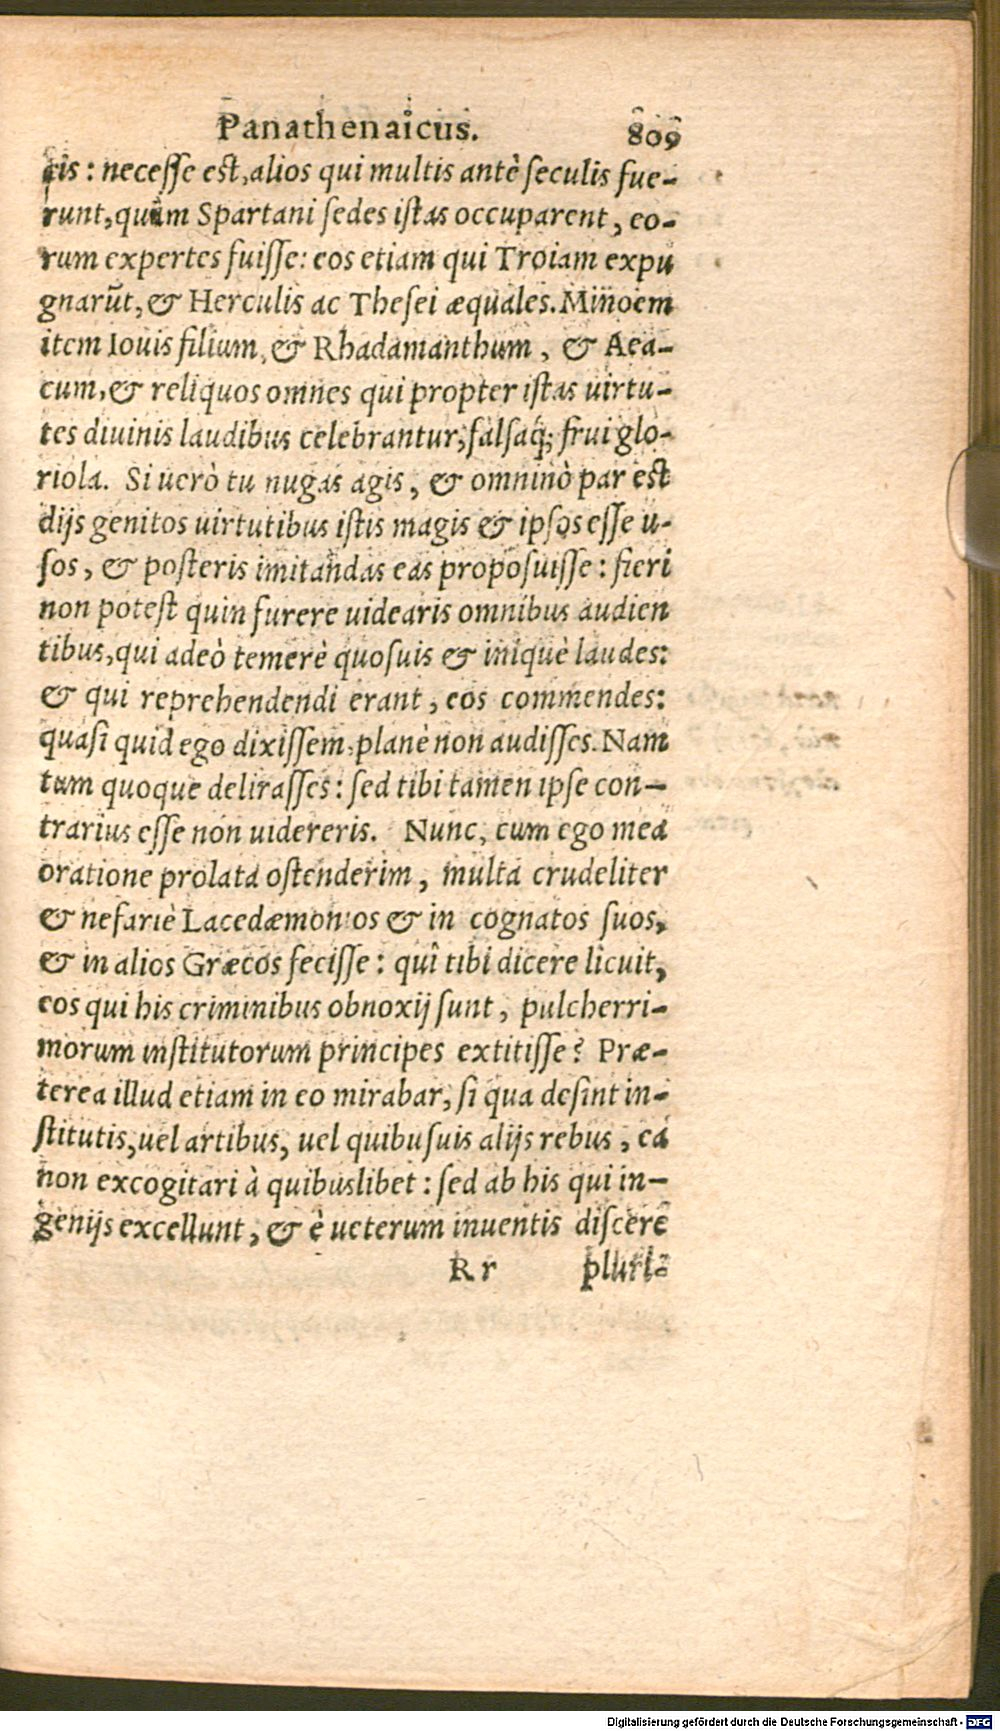 Panathenaicus. 809
cis: necesse est, alios qui multis antè seculis fue-
runt, quàm Spartani sedes istas occuparent, eo-
rum expertes fuisse: eos etiam qui Troiam expu
gnarūt, & Herculis ac Thesei æquales. Minoem
item Iouis filium, & Rhadamanthum, & Aea-
cum, & reliquos omnes qui propter istas uirtu-
tes diuinis laudibus celebrantur, falsaq́; frui glo-
riola. Si uerò tu nugas agis, & omninò par est
dijs genitos uirtutibus istis magis & ipsos esse u-
sos, & posteris imitandas eas proposuisse: fieri
non potest quin furere uidearis omnibus audien
tibus, qui adeò temerè quosuis & iniquè laudes:
& qui reprehendendi erant, eos commendes:
quasi quid ego dixissem, planè non audisses. Nam
tum quoque delirasses: sed tibi tamen ipse con-
trarius esse non uidereris. Nunc, cum ego mea
oratione prolata ostenderim, multa crudeliter
& nefariè Lacedæmonios & in cognatos suos,
& in alios Græcos fecisse: quî tibi dicere licuit,
eos qui his criminibus obnoxij sunt, pulcherri-
morum institutorum principes extitisse? Præ-
terea illud etiam in eo mirabar, si qua desint in-
stitutis, uel artibus, uel quibusuis alijs rebus, ea
non excogitari à quibuslibet: sed ab his qui in-
genijs excellunt, & è ueterum inuentis discere
Rr pluri-
Digitalisierung gefördert durch die Deutsche Forschungsgemeinschaft - DFG